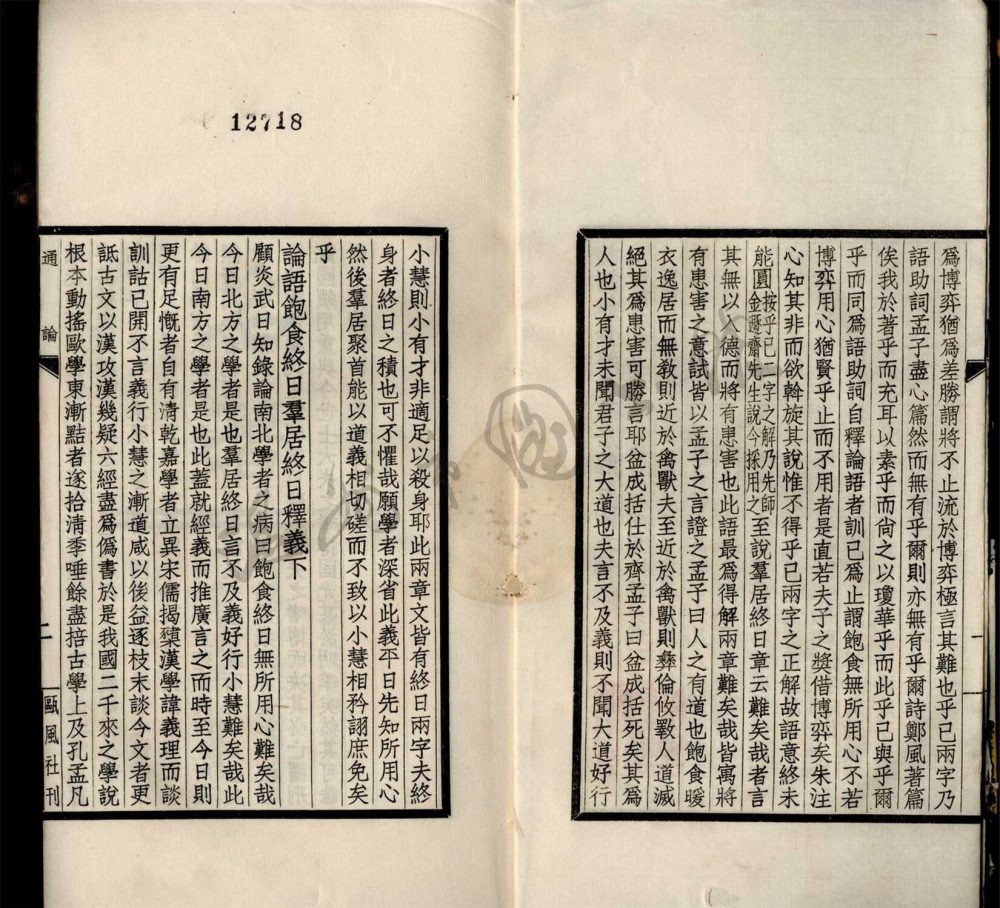 爲博弈猶爲差勝謂將不止流於博弈極言其難也乎已兩字乃
語助詞孟子盡心篇然而而無有乎爾則亦無有乎爾詩鄭風著篇
俟我於著乎而充耳以素乎而尙之以瓊華乎而此乎已與乎爾
乎而同爲語助詞自釋論語者訓已爲止謂飽食無所用心不若
博弈用心猶賢乎止而不用者是直若夫子之獎借博弈矣朱注
心知其非而欲斡旋其說惟不得乎已兩字之正解故語意終未
能圓按乎已二字之解乃先師金遯齋先生說今採用之至說羣居終日章云難矣哉者言
其無以入德而將有患害也此語最爲得解兩章難矣哉皆寓將
有患害之意試皆以孟子之言證之孟子曰人之有道也飽食暖
衣逸居而無敎則近於禽獸夫至近於禽獸則彝倫攸斁人道滅
絕其爲患害可勝言耶盆成括仕於齊孟子曰盆成括死矣其爲
人也小有才未聞君子之大道也夫言不及義則不聞大道好行
小慧則小有才非適足以殺身耶此兩章文皆有終日兩字夫終
身者終日之積也可不懼哉願學者深省此義平日先知所用心
然後羣居聚首能以道義相切磋而不致以小慧相矜詡庶免矣
乎
論語飽食終日羣居終日釋義下
顧炎武日知錄論南北學者之病曰飽食終日無所用心難矣哉
今日北方之學者是也羣居終日言不及義好行小慧難矣哉此
今日南方之學者是也此蓋就經義而推廣言之而時至今日則
更有足慨者自有淸乾嘉學者立異宋儒揭櫫漢學諱義理而談
訓詁已開不言義行小慧之漸道咸以後益逐枝末談今文者更
詆古文以漢攻漢幾疑六經盡爲僞書於是我國二千來之學說
根本動搖歐學東漸黠者遂拾淸季唾餘盡掊古學上及孔孟凡
通論
二
甌風社刊
12718